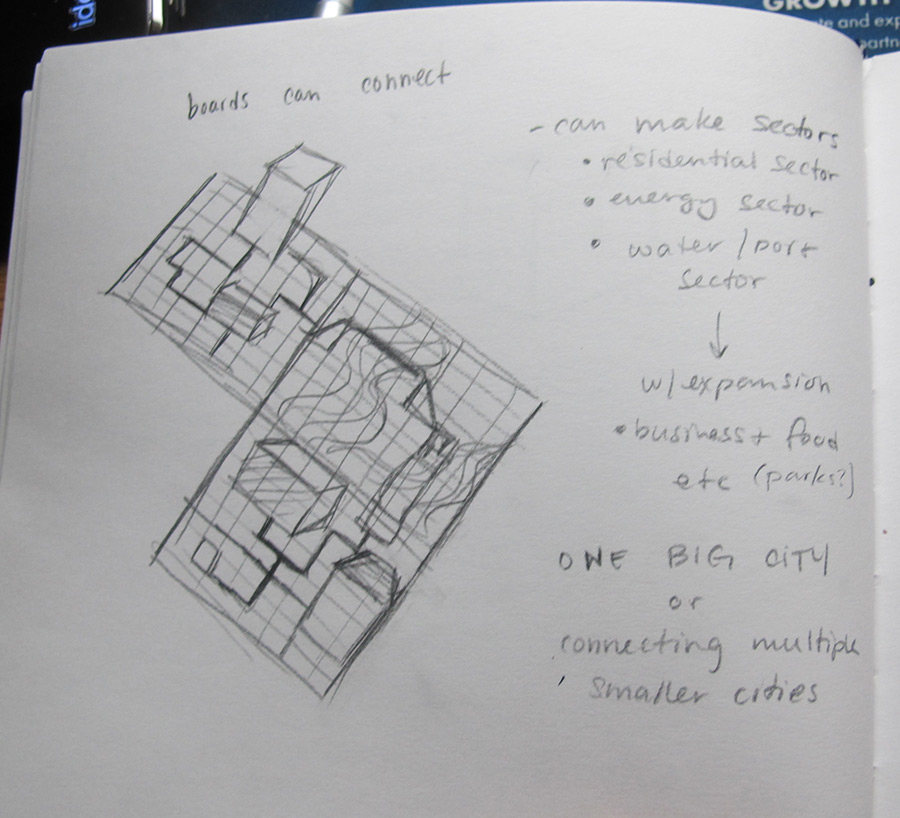 ide
GROWTH
te and exp
partn
boards can connect
- can make sectors
• residential sector
• energy sector
• water/port
sector
↓
w/expansion
• business + food
etc (parks?)
ONE BIG CITY
or
connecting multiple
smaller cities